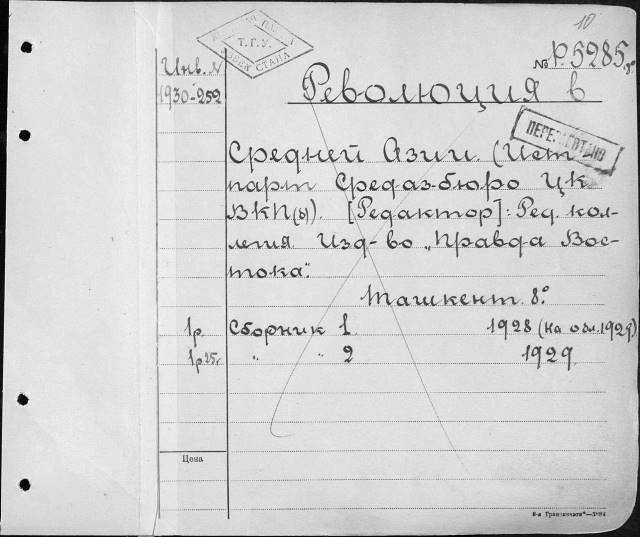 10
Т.Г.У.
Инв. №
№ Р.5285
1930-252
Революция в
ПЕРЕРАБОТАНО
Средней Азии. (Ист
парт Средаз-бюро ЦК
ВКП(ы)). [Редактор]: Ред. кол-
легия. Изд-во „Правда Вос-
тока".
Ташкент. 8.°
1р. Сборник 1. 1928 (на обл. 1929)
1р 25к „ „ 2 1929.
Цена